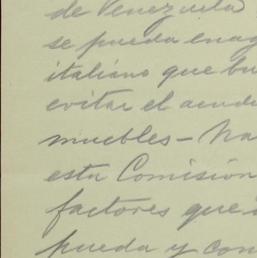 de Venezuela
se pueda enag
italiano que bu
evitar el acud
muebles – Na
esta Comisión
factores que
pueda y con